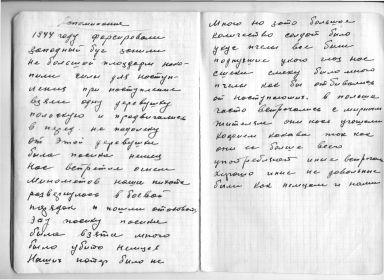 Вспоминание
1944 году форсировали
западный буг заняли
не большой плацдарм нако-
пили силы для наступ-
ления при наступление
взяли одну деревушку
польскую и продвигались
в перед не подалеку
от этой деревушки
была посека немец
нас встретил огнем
Минометов наша пихота
развернулось в боевой
порядок и пошли атаковать
эту посеку посека
была взята много
было убито немцев
Наших потер было не
Много но зато большое
количество солдат было
укус пчелы все были
подпухшие у кого глаз нос
смеху было много
пчелы как бы отбивались
от наступающих. в польше
часто встречались с мирными
жителями они нас угощали
кофием какава так как
они се больше всего
употребляют иные встречали
хорошо иные не довольные
были как поляками и нами